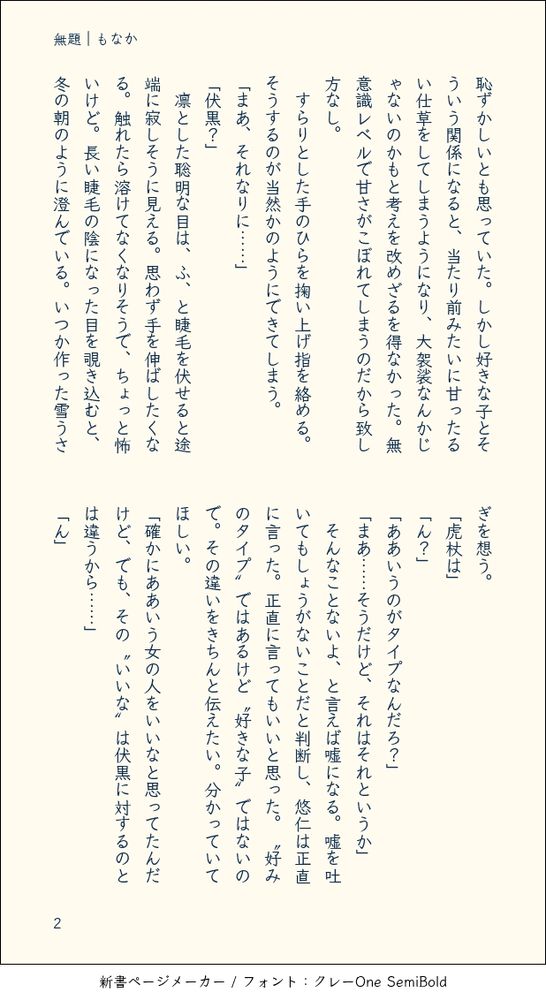 無題 | もなか
恥ずかしいとも思っていた。しかし好きな子とそ
ういう関係になると、当たり前みたいに甘ったる
い仕草をしてしまうようになり、大袈裟なんかじ
ゃないのかもと考えを改めざるを得なかった。無
意識レベルで甘さがこぼれてしまうのだから致し
方なし。
　すらりとした手のひらを掬い上げ指を絡める。
そうするのが当然かのようにできてしまう。
「まあ、それなりに……」
「伏黒？」
　凛とした聡明な目は、ふ、と睫毛を伏せると途
端に寂しそうに見える。思わず手を伸ばしたくな
る。触れたら溶けてなくなりそうで、ちょっと怖
いけど。長い睫毛の陰になった目を覗き込むと、
冬の朝のように澄んでいる。いつか作った雪うさ
ぎを想う。
「虎杖は」
「ん？」
「ああいうのがタイプなんだろ？」
「まあ……そうだけど、それはそれというか」
　そんなことないよ、と言えば嘘になる。嘘を吐
いてもしょうがないことだと判断し、悠仁は正直
に言った。正直に言ってもいいと思った。〝好み
のタイプ〟ではあるけど〝好きな子〟ではないの
で。その違いをきちんと伝えたい。分かっていて
ほしい。
「確かにああいう女の人をいいなと思ってたんだ
けど、でも、その〝いいな〟は伏黒に対するのと
は違うから……」
「ん」
2
新書ページメーカー / フォント：クレーOne SemiBold